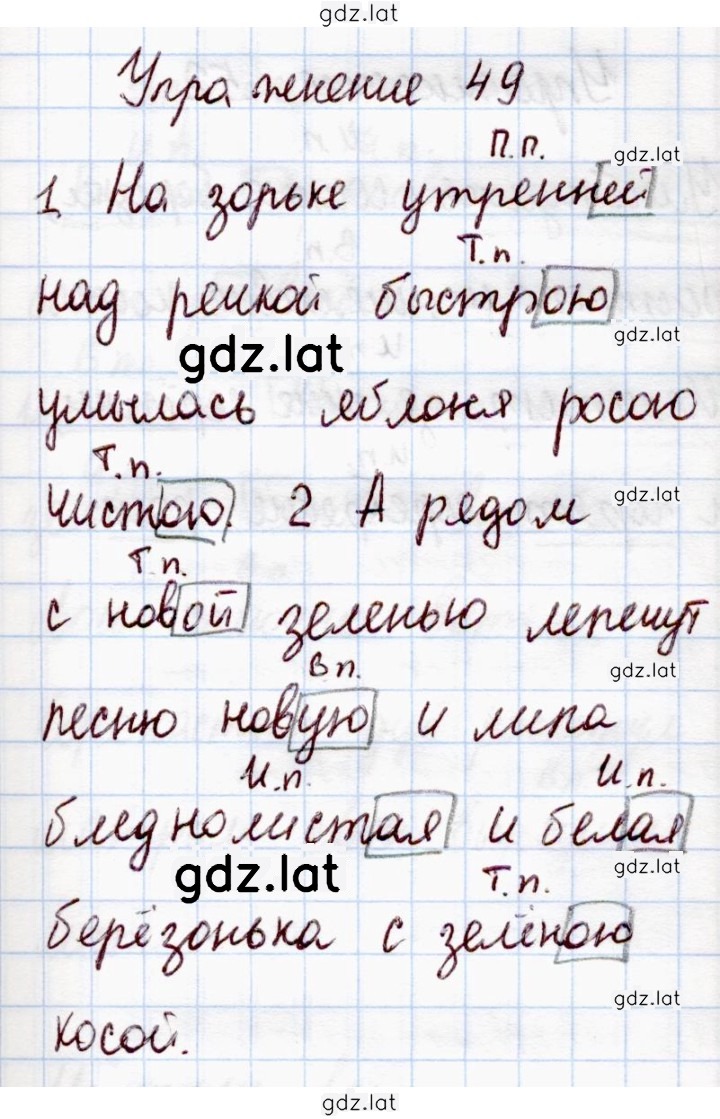 gdz.lat
Упражнение 49
П.п.
gdz.lat
1 На зорьке утренней
Т.п.
над речкой быстрою
gdz.lat
gdz.lat
умылась яблоня росою
Т.п.
gdz.lat
чистою. 2 А рядом
Т.п.
с новой зеленью лепечут
В п.
gdz.lat
песню новую и липа
И.п. И.п.
бледнолистая и белая
gdz.lat
gdz.lat
Т.п.
берёзонька с зелёною
gdz.lat
косой.
gdz.lat